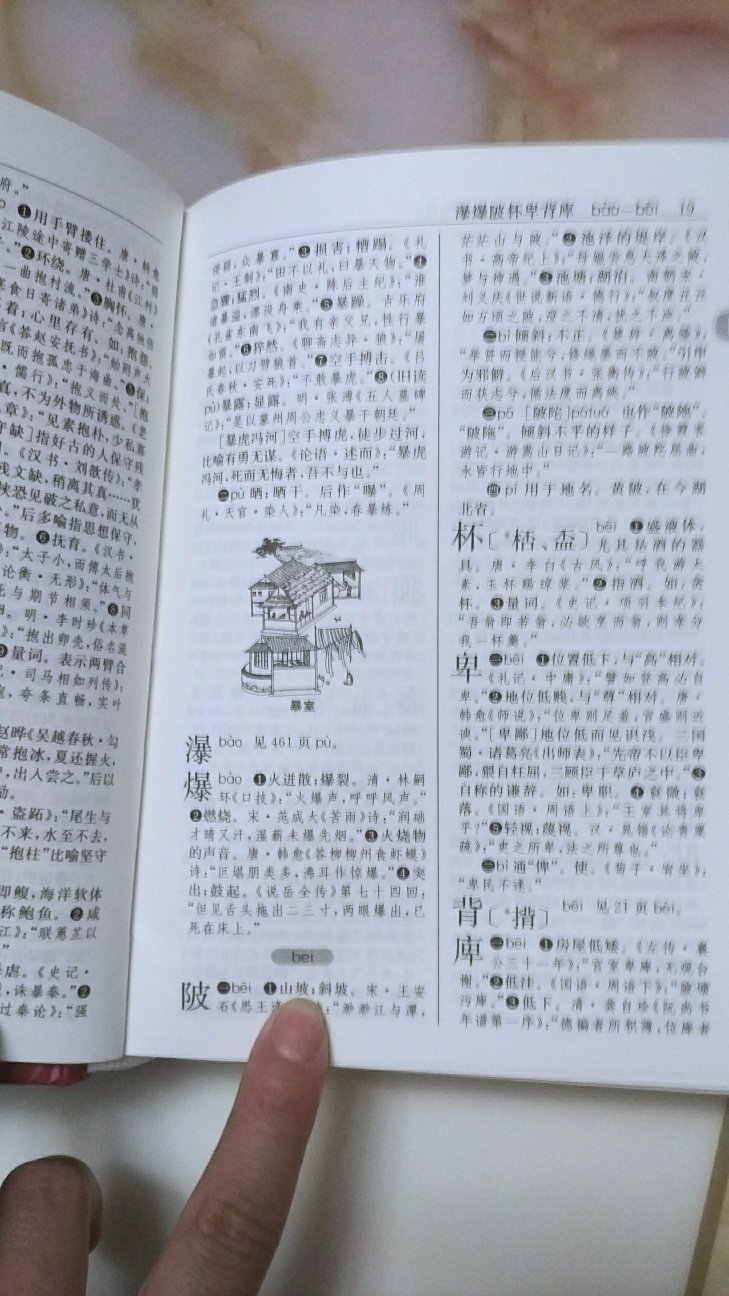 府。”
❶用手臂搂住。唐·韩愈
江陵途中寄赠三学士》诗：
❷环绕。唐·杜甫《江村》
一曲抱村流。”❸胸怀。唐·
寒食日寄诸弟》诗：“念离独伤
着；心里存有。如：抱怨。
《答赵安抚书》：“始则声大
既而抱孤忠于海曲。”❺保；
·儒行》：“抱义而处。”[抱
真，不为外物所诱惑。《老
章》：“见素抱朴，少私寡
守缺]指好古的人保守残
《汉书·刘歆传》：“孝
残文缺，稍离其真……我
挟恐见破之私意，而无从
。”后多喻指思想保守，
物。❻抚育。《汉书·
：“太子小，而傅太后抱
论衡·无形》：“体气与
死与期节相须。”❽同
内。明·李时珍《本草
：“抱出卵壳，俗名混
❾量词。表示两臂合
·司马相如列传》：
抱，夸条直畅，实叶
赵晔《吴越春秋·勾
常抱冰，夏还握火，
中，出入尝之。”后以
励。
·盗跖》：“尾生与
不来，水至不去，
“抱柱”比喻坚守
即鳆，海洋软体
称鲍鱼。❷咸
江》：“联蕙芷以
”
暴虐。《史记·
，诛暴秦。”❷
过秦论》：“强
瀑爆陂杯卑背庳 bào—bēi 19
侵弱，众暴寡。”❸损害；糟蹋。《礼
记·王制》：“田不以礼，曰暴天物。”❹
急骤；猛烈。《南史·陈后主纪》：“淮
渚暴溢，漂没舟乘。”❺暴躁。古乐府
《孔雀东南飞》：“我有亲父兄，性行暴
如雷。”❻猝然。《聊斋志异·狼》：“屠
暴起，以刀劈狼首。”❼空手搏击。《吕
氏春秋·安死》：“不敢暴虎。”❽(旧读
pù)暴露；显露。明·张溥《五人墓碑
记》：“是以蓼州周公忠义暴于朝廷。”
[暴虎冯河]空手搏虎，徒步过河，
比喻有勇无谋。《论语·述而》：“暴虎
冯河，死而无悔者，吾不与也。”
㊁pù 晒；晒干。后作“曝”。《周
礼·天官·染人》：“凡染，春暴练。”
暴室
瀑 bào 见461页pù。
爆 bào ❶火迸散；爆裂。清·林嗣
环《口技》：“火爆声，呼呼风声。”
❷燃烧。宋·范成大《苦雨》诗：“润础
才晴又汗，湿薪未爆先烟。”❸火烧物
的声音。唐·韩愈《答柳柳州食虾蟆》
诗：“叵堪朋类多，沸耳作惊爆。”❹突
出；鼓起。《说岳全传》第七十四回：
“但见舌头拖出二三寸，两眼爆出，已
死在床上。”
bei
陂 ㊀bēi ❶山坡；斜坡。宋·王安
石《思王逢原》诗：“渺渺江与潭，
茫茫山与陂。”❷池泽的堤岸。《汉
书·高帝纪上》：“母媪尝息大泽之陂，
梦与神遇。”❸池塘；湖泊。南朝宋·
刘义庆《世说新语·德行》：“叔度汪汪
如万顷之陂，澄之不清，扰之不浊。”
㊁bì 倾斜；不正。《楚辞·离骚》：
“举贤而授能兮，循绳墨而不陂。”引申
为邪僻。《后汉书·张衡传》：“行陂僻
而获志兮，循法度而离殃。”
㊂pō [陂陀]pōtuó 也作“陂陁”、
“陂陁”。倾斜不平的样子。《徐霞客
游记·游嵩山日记》：“一路陂陀屈曲，
永皆行地中。”
㊃pí 用于地名。黄陂，在今湖
北省。
杯〔*桮、盃〕 bēi ❶盛液体，
尤其是酒的器
具。唐·李白《古风》：“呼我游太
素，玉杯赐琼浆。”❷指酒。如：贪
杯。❸量词。《史记·项羽本纪》：
“吾翁即若翁，必欲烹而翁，则幸分
我一杯羹。”
卑 ㊀bēi ❶位置低下，与“高”相对。
《礼记·中庸》：“譬如登高必自
卑。”❷地位低贱，与“尊”相对。唐·
韩愈《师说》：“位卑则足羞，官盛则近
谀。”[卑鄙]地位低而见识浅。三国
蜀·诸葛亮《出师表》：“先帝不以臣卑
鄙，猥自枉屈，三顾臣于草庐之中。”❸
自称的谦辞。如：卑职。❹衰微；衰
落。《国语·周语上》：“王室其将卑
乎？”❺轻视；蔑视。汉·晁错《论贵粟
疏》：“吏之所卑，法之所尊也。”
㊁bǐ 通“俾”。使。《荀子·宥坐》：
“卑民不迷。”
背〔*揹〕 bēi 见21页bèi。
庳 ㊀bēi ❶房屋低矮。《左传·襄
公三十一年》：“宫室卑庳，无观台
榭。”❷低洼。《国语·周语下》：“陂塘
污庳。”❸低下。清·龚自珍《阮尚书
年谱第一序》：“德褊者所积薄，位庳者